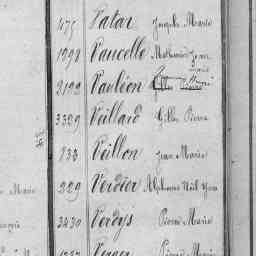 475 Patar Joseph Marie
1998 Vaucelle Mathurin Jean
Marie
2192 Vauléon
3329 Veillard Gilles Pierre
733 Veillon Jean Marie
229 Verdier Alphonse Noël Yves
3430 Verdys Pierre Marie
Verger Pierre Marie
Marie